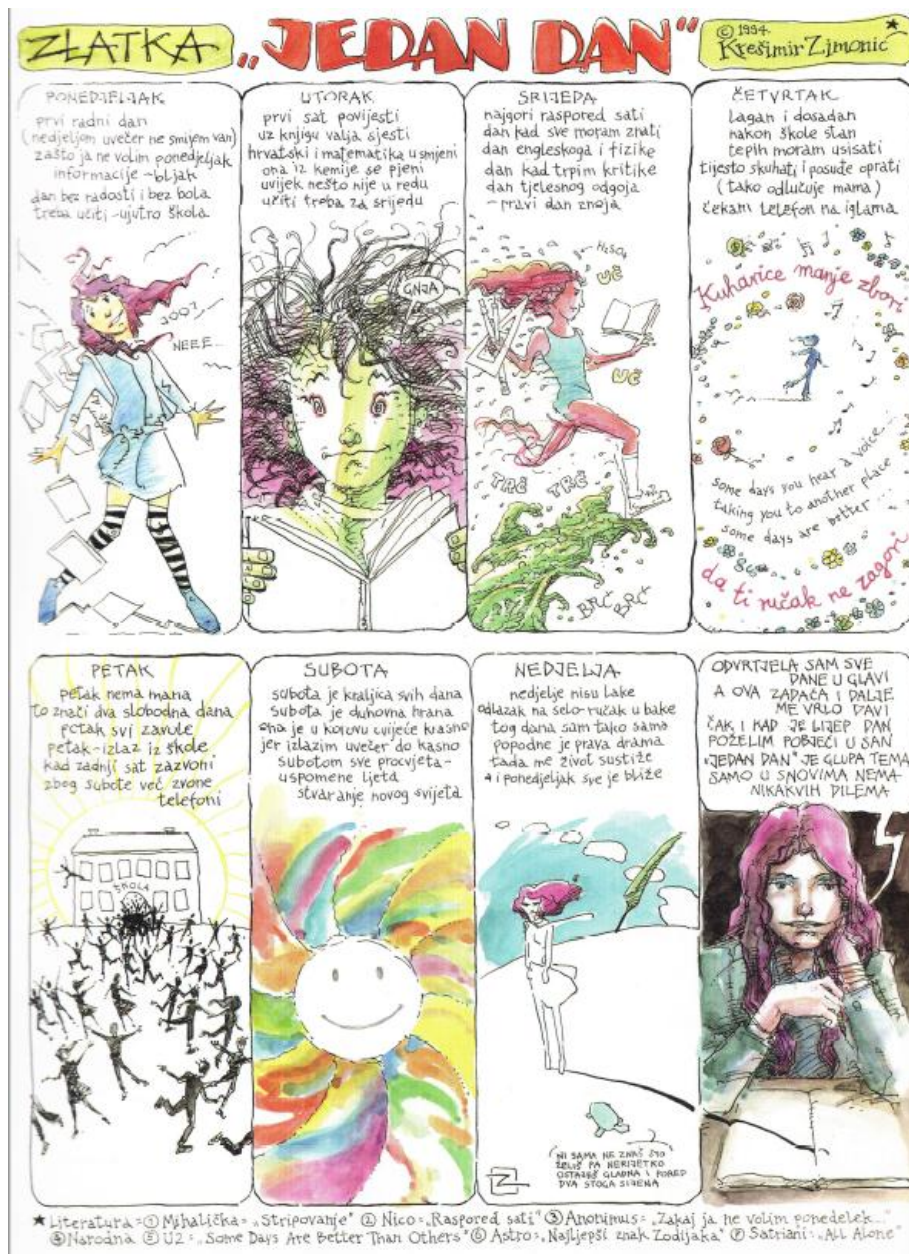 ZLATKA
„JEDAN DAN“
© 1994.
Krešimir Zimonić *
PONEDJELJAK
prvi radni dan
(nedjeljom uvečer ne smijem van)
zašto ja ne volim ponedjeljak
informacije - bljak
dan bez radosti i bez bola
treba učiti - ujutro škola
JOOJ
NEEE...
UTORAK
prvi sat povijesti
uz knjigu valja sjesti
hrvatski i matematika u smjeni
ona iz kemije se pjeni
uvijek nešto nije u redu
učiti treba za srijedu
GNJA
SRIJEDA
najgori raspored sati
dan kad sve moram znati
dan engleskoga i fizike
dan kad trpim kritike
dan tjelesnog odgoja
- pravi dan znoja
H₂SO₄
UČ
UČ
TRČ TRČ
BRČ
BRČ
ČETVRTAK
Lagan i dosadan
nakon škole stan
tepih moram usisati
tijesto skuhati i posuđe oprati
(tako odlučuje mama)
čekam telefon na iglama
Kuharice manje zbori
some days you hear a voice...
taking you to another place
some days are better...
da ti ručak ne zagori
PETAK
petak nema mana
to znači dva slobodna dana
petak svi zavole
petak - izlaz iz škole
kad zadnji sat zazvoni
zbog subote već zvone
telefoni
ŠKOLA
SUBOTA
subota je kraljica svih dana
subota je duhovna hrana
ona je u korovu cvijeće krasno
jer izlazim uvečer do kasno
subotom sve procvjeta -
uspomene ljeta
stvaranje novog svijeta
NEDJELJA
nedjelje nisu lake
odlazak na selo - ručak u bake
tog dana sam tako sama
popodne je prava drama
tada me život sustiže
a i ponedjeljak sve je bliže
NI SAMA NE ZNAŠ ŠTO
ŽELIŠ PA NERIJETKO
OSTAJEŠ GLADNA I PORED
DVA STOGA SIJENA
ODVRTJELA SAM SVE
DANE U GLAVI
A OVA ZADAĆA I DALJE
ME VRLO DAVI
ČAK I KAD JE LIJEP DAN
POŽELIM POBJEĆI U SAN
„JEDAN DAN“ JE GLUPA TEMA
SAMO U SNOVIMA NEMA
NIKAKVIH DILEMA
* Literatura: ① Mihalička: „Stripovanje“ ② Nico: „Raspored sati“ ③ Anonimus: „Zakaj ja ne volim ponedelek...“
④ Narodna ⑤ U2: „Some Days Are Better Than Others“ ⑥ Astro: „Najljepši znak Zodijaka“ ⑦ Satriani: „All Alone“